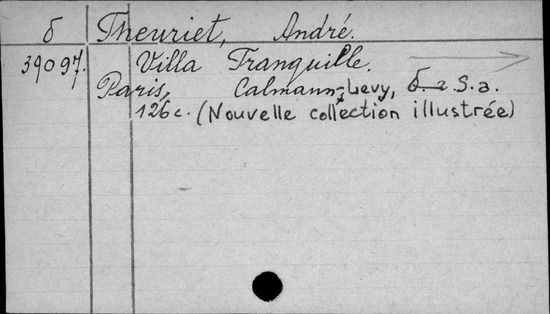 б Theuriet, André.
39097. Villa Tranquille.
Paris, Calmann-Levy, б. г. S.a.
126 c. (Nouvelle collection illustrée)